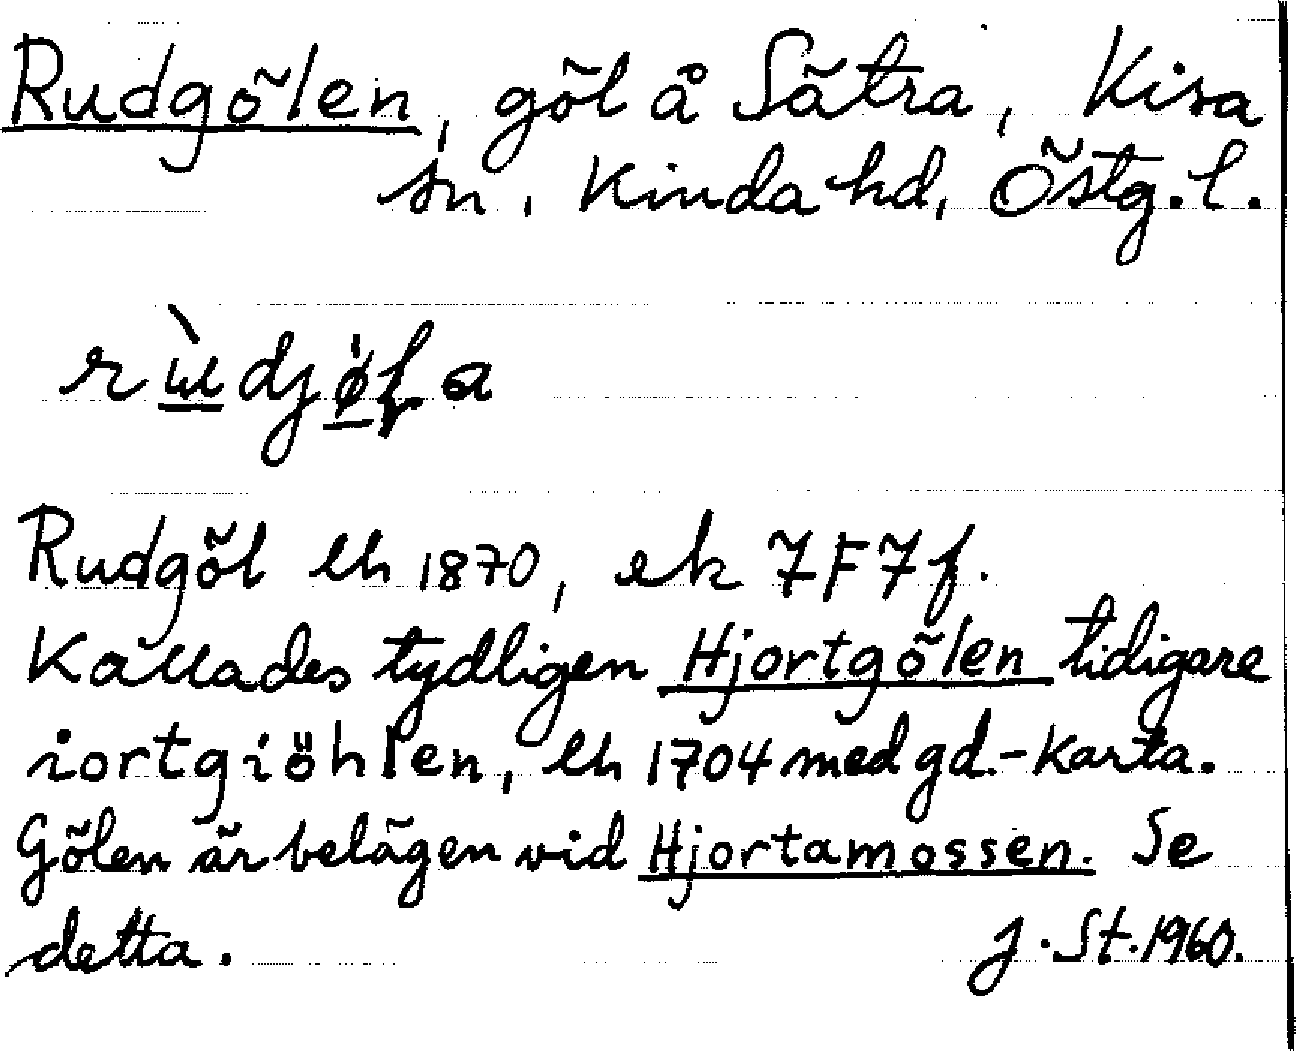 Rudgölen, göl å Sätra, Kisa
sn, Kinda hd, Östg.l.
Rudgöl lh 1870, ek 7F7f.
Kallades tydligen Hjortgölen tidigare
iortgiöhlen, lh 1704 med gd.-karta.
Gölen är belägen vid Hjortamossen. Se
detta. J.St.1960.